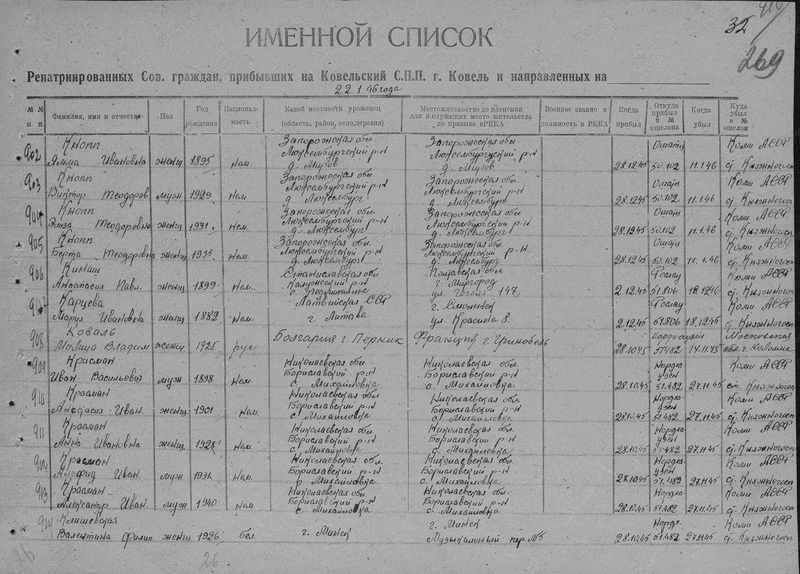 32
269
ИМЕННОЙ СПИСОК
Репатриированных Сов. граждан, прибывших на Ковельский С.П.П. г. Ковель и направленных на
22 1 46 года
№ № п. п.
Фамилия, имя и отчество
Пол
Год рождения
Националь-ность
Какой местности уроженец (область, район, селодеревня)
Местожительство до пленения для в служащих место жительства до призыва в РККА
Военное звание и должность в РККА
Когда прибыл
Откуда прибыл № эшелона
Когда убыл
Куда убыл и № эшелон
902 Кнопп Ивановна женщ 1895 нем. Запорожская обл Люксембургский р-н Запорожская обл Люксембургский р-н 28.12.45 50.102 11.1.46 Коми АССР ст. Княжпогост
903 Кнопп Виктор Теодоров муж 1929 нем. Запорожская обл Люксембургский р-н д. Люксембург Запорожская обл Люксембургский р-н д. Люксембург 28.12.45 50.102 11.1.46 Коми АССР ст. Княжпогост
904 Кнопп Теодоровна женщ 1931 нем. Запорожская обл. Люксембургский р-н д. Люксембург Запорожская обл. Люксембургский р-н д. Люксембург 28.12.45 50.102 11.1.46 Коми АССР ст. Княжпогост
905 Кнопп Берта Теодоровна женщ 1935 нем. Запорожская обл. Люксембургский р-н д. Люксембург Запорожская обл. Люксембургский р-н д. Люксембург 28.12.45 50.102 11.1.46 Коми АССР ст. Княжпогост
906 Анастасия Павл. женщ 1899 нем. Станиславская обл г. Миргород ул. Гоголя 147 2.12.45 51.806 18.12.46 Коми АССР ст. Княжпогост
907 Карцева Мария Ивановна женщ 1882 нем. Латвийская ССР г. Митава г. Смоленск ул Красина 8 2.12.45 51.806 18.12.45 Коми АССР ст. Княжпогост
908 Коваль Владим женщ 1925 рус Болгария г. Перник Франция г. Гренобель 28.10.45 51.482 14.11.45 Московская обл. г. Коломна
909 Крисман Иван Васильевич муж 1898 нем. Николаевская обл Бориславский р-н с. Михайловка Николаевская обл. Бориславский р-н с. Михайловка 28.10.45 51.482 27.11.45 Коми АССР ст. Княжпогост
910 Крисман Анастасия Иван. женщ 1901 нем. Николаевская обл. Бориславский р-н с. Михайловка Николаевская обл. Бориславский р-н с. Михайловка 28.10.45 51.482 27.11.45 Коми АССР ст. Княжпогост
911 Крисман Анна Ивановна женщ 1928 нем. Николаевская обл. Бориславский р-н с. Михайловка Николаевская обл. Бориславский р-н с. Михайловка 28.10.45 51.482 27.11.45 Коми АССР ст. Княжпогост
912 Крисман Альфрид Иван. муж нем. Николаевская обл. Бориславский р-н с. Михайловка Николаевская обл. Бориславский р-н с. Михайловка 28.10.45 51.482 27.11.45 Коми АССР ст. Княжпогост
913 Крисман Александр Иван. муж 1940 нем. Николаевская обл Бориславский р-н с. Михайловка Николаевская обл Бориславский р-н с. Михайловка 28.10.45 51.482 27.11.45 Коми АССР ст. Княжпогост
914 Валентина Филип. женщ 1926 бел. г. Минск г. Минск Музыкальный пер. №5 28.10.45 51.482 27.11.45 Коми АССР ст. Княжпогост
26
26.